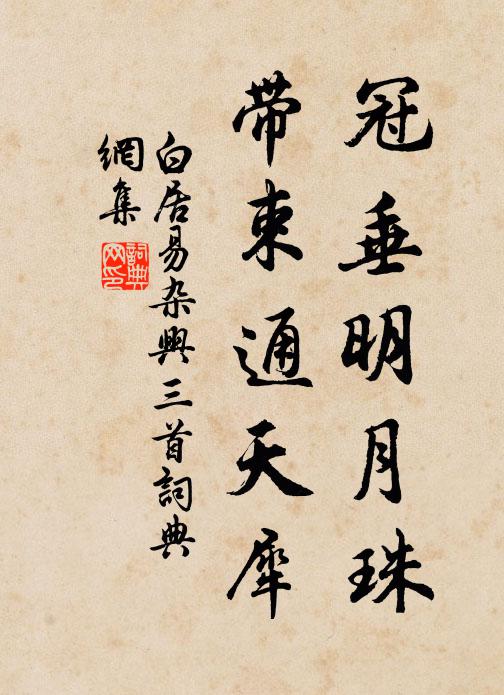 冠垂明月珠
帶束通天犀
白居易杂興三首詞典
網集
詞典
网印